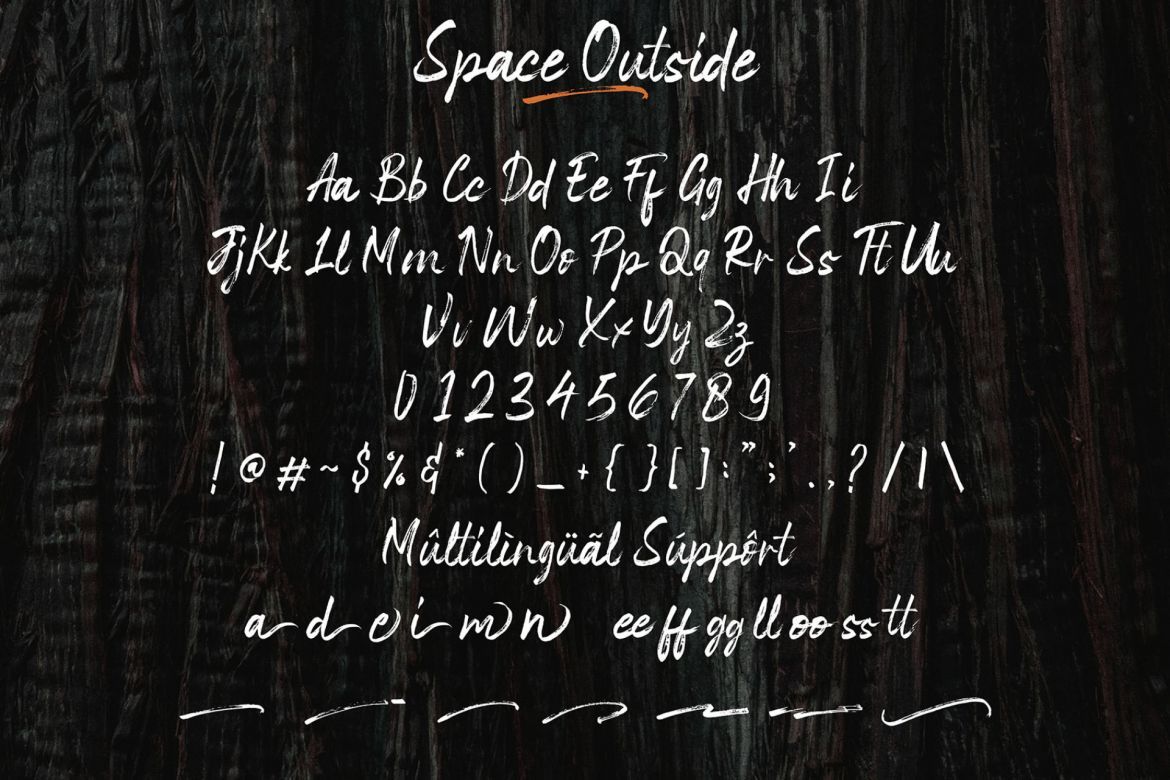 Space Outside
Aa Bb Cc Dd Ee Ff Gg Hh Ii
Jj Kk Ll Mm Nn Oo Pp Qq Rr Ss Tt Uu
Vv Ww Xx Yy Zz
0 1 2 3 4 5 6 7 8 9
! @ # ~ $ % & * ( ) _ + { } [ ] : ” ; ’ . , ? / | \
Mûltilìngüãl Súppôrt
a d e i m n ee ff gg ll oo ss tt